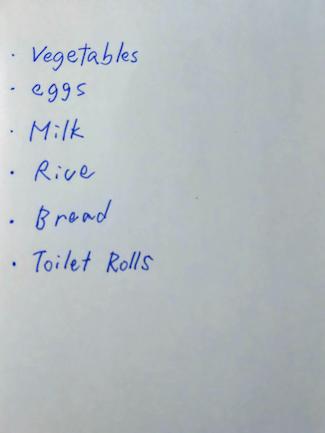 · Vegetables
· eggs
· Milk
· Rice
· Bread
· Toilet Rolls